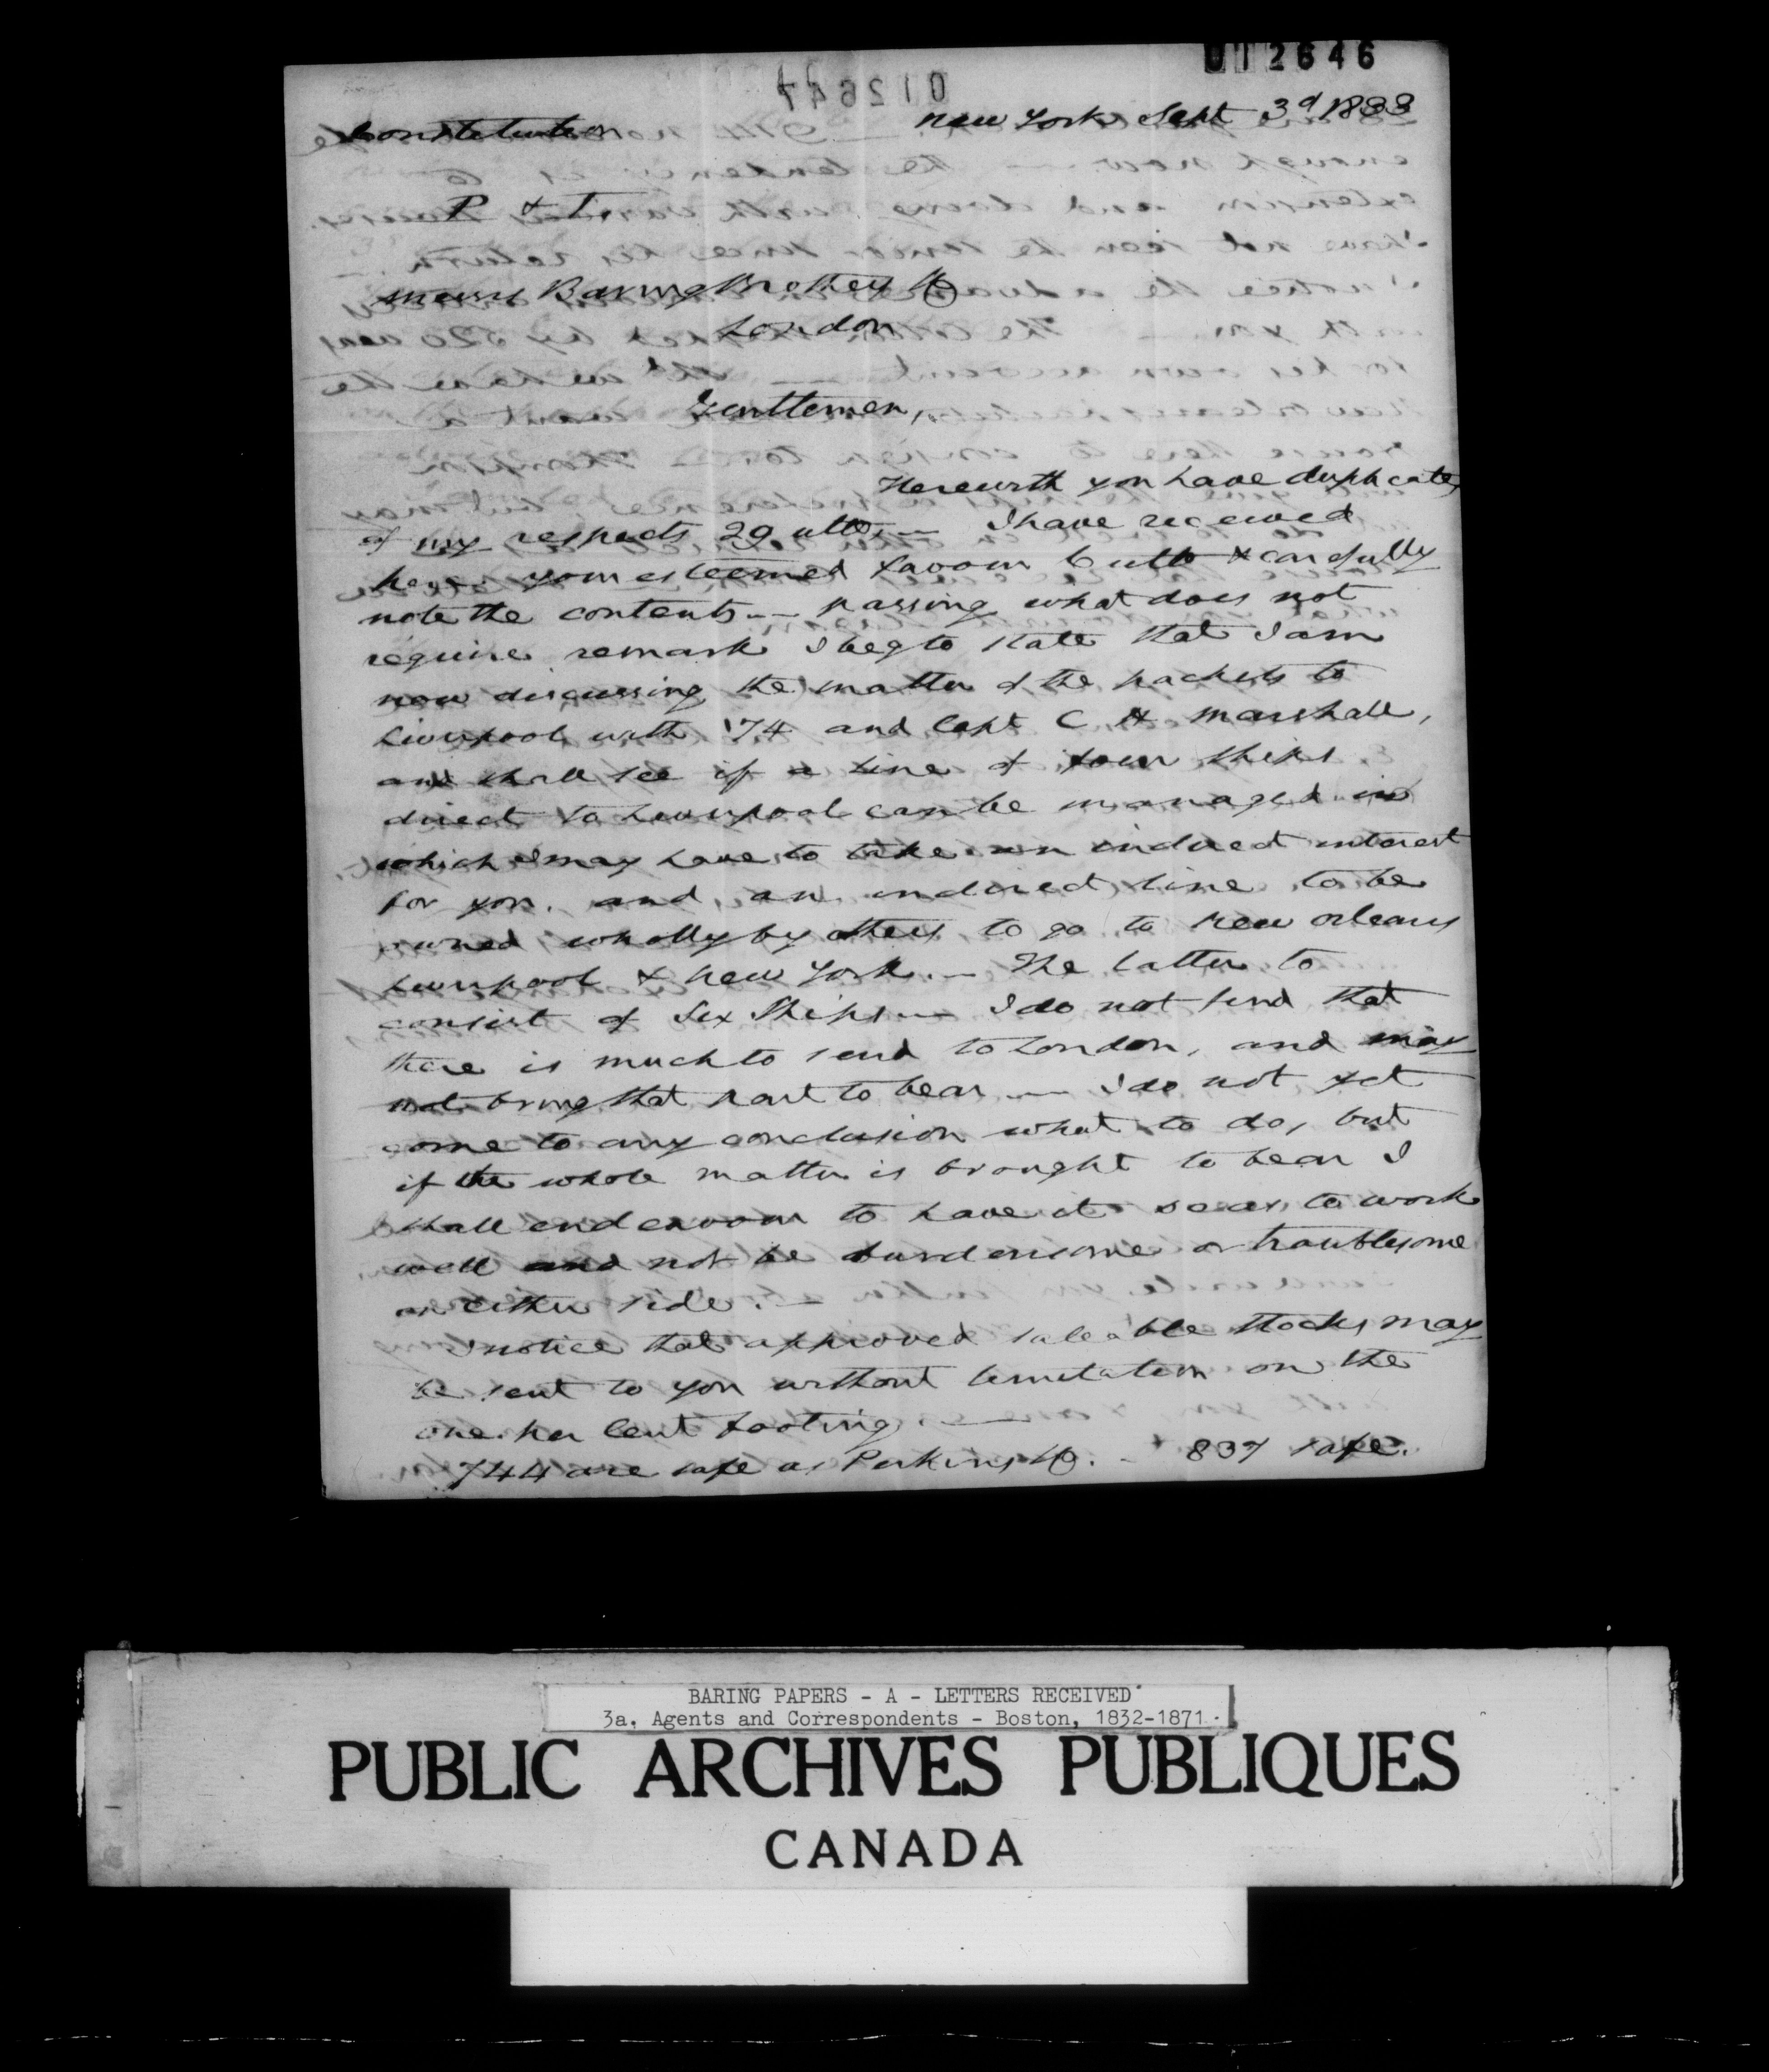 012646
012647
Constitution
New York Sept 3d 1833
P & L.
Messrs Baring Brothers & Co
London
Gentlemen,
Herewith you have duplicate
of my respects 29 ulto, — I have received
here your esteemed favour 6 ulto & carefully
note the contents — passing what does not
require remark I beg to state that I am
now discussing the matter of the packets to
Liverpool with 74 and Capt C H Marshall,
and shall see if a line of four ships
direct to Liverpool can be managed in
which I may have to take an indirect interest
for you, and an indirect line to be
owned wholly by others to go to New Orleans
Liverpool & New York. — The latter to
consist of Six Ships — I do not find that
there is much to send to London, and may
not bring that part to bear — I do not yet
come to any conclusion what to do, but
if the whole matter is brought to bear I
shall endeavour to have it so as to work
well and not be burdensome or troublesome
on either side. —
I notice that approved saleable Stocks may
be sent to you without limitation on the
one per Cent footing. —
744 are safe as Perkins & Co. — 837 safe.
BARING PAPERS - A - LETTERS RECEIVED
3a. Agents and Correspondents - Boston, 1832-1871.
PUBLIC ARCHIVES PUBLIQUES
CANADA